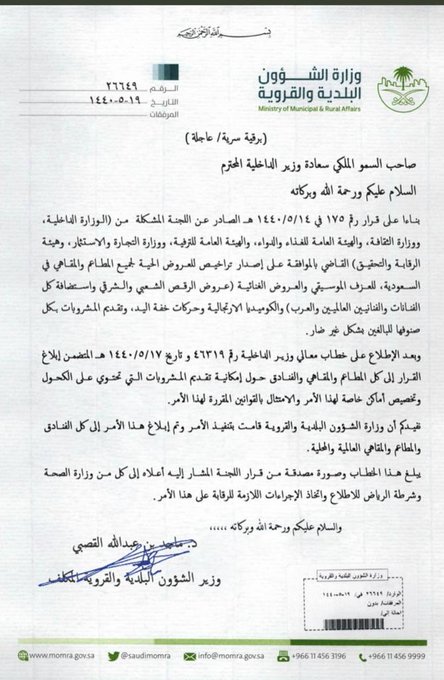 بسم الله الرحمن الرحيم
وزارة الشؤون
البلدية والقروية
Ministry of Municipal & Rural Affairs
الرقم ٢٦٦٤٩
التاريخ ١٩-٥-١٤٤٠
المرفقات
(برقية سرية/ عاجلة)
صاحب السمو الملكي سعادة وزير الداخلية المحترم
السلام عليكم ورحمة الله وبركاته
بناءا على قرار رقم ١٧٥ في ١٤٤٠/٥/١٤ هـ الصادر عن اللجنة المشكلة من (الوزارة الداخلية،
ووزارة الثقافة، والهيئة العامة للغذاء والدواء، والهيئة العامة للترفية، ووزارة التجارة والاستثار، وهيئة
الرقابة والتحقيق) القاضي بالموافقة على إصدار تراخيص للعروض الحية لجميع المطاعم والمقاهي في
السعودية، للعزف الموسيقي والعروض الغنائية (عروض الرقص الشعبي والشرقي واستضافة كل
الفنانات والفنانيين العالميين والعرب) والكوميديا الارتجالية وحركات خفة اليد، وتقديم المشروبات بكل
صنوفها للبالغين بشكل غير ضار.
وبعد الإطلاع على خطاب معالي وزير الداخلية رقم ٤٦٣١٩ و تاريخ ١٤٤٠/٥/١٧ هـ المتضمن إبلاغ
القرار إلى كل المطاعم والمقاهي والفنادق حول إمكانية تقديم المشروبات التي تحتوي على الكحول
وتخصيص أماكن خاصة لهذا الأمر والامتثال بالقوانين المقررة لهذا الأمر.
نفيدكم أن وزارة الشؤون البلدية والقروية قامت بتنفيذ الأمر وتم إبلاغ هذا الأمر إلى كل الفنادق
والمطاعم والمقاهي العالمية والمحلية.
يبلغ هذا الخطاب وصورة مصدقة من قرار اللجنة المشار إليه أعلاه إلى كل من وزارة الصحة
وشرطة الرياض للاطلاع واتخاذ الإجراءات اللازمة للرقابة على هذا الأمر.
والسلام عليكم ورحمة الله وبركاته ،،،،،
د. ماجد بن عبدالله القصبي
وزير الشؤون البلدية والقروية المكلف
وزارة الشؤون البلدية والقروية
الوارد/ ٢٦٦٤٩ في: ١٩-٥-١٤٤٠
المرفقات/ بدون
احالة إلى/
www.momra.gov.sa @saudimomra info@momra.gov.sa +966 11 456 3196 +966 11 456 9999